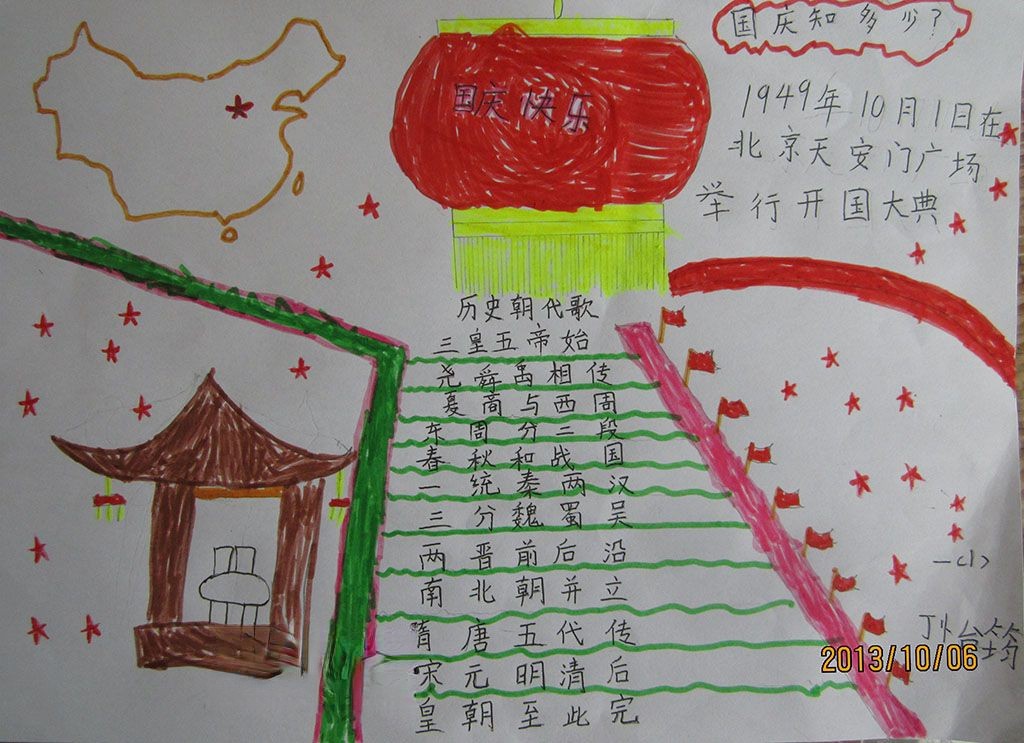 国庆知多少?
国庆快乐
1949年10月1日在
北京天安门广场
举行开国大典
历史朝代歌
三皇五帝始
尧舜禹相传
夏商与西周
东周分二段
春秋和战国
一统秦两汉
三分魏蜀吴
两晋前后沿
南北朝并立
隋唐五代传
宋元明清后
皇朝至此完
一<1>
2013/10/06